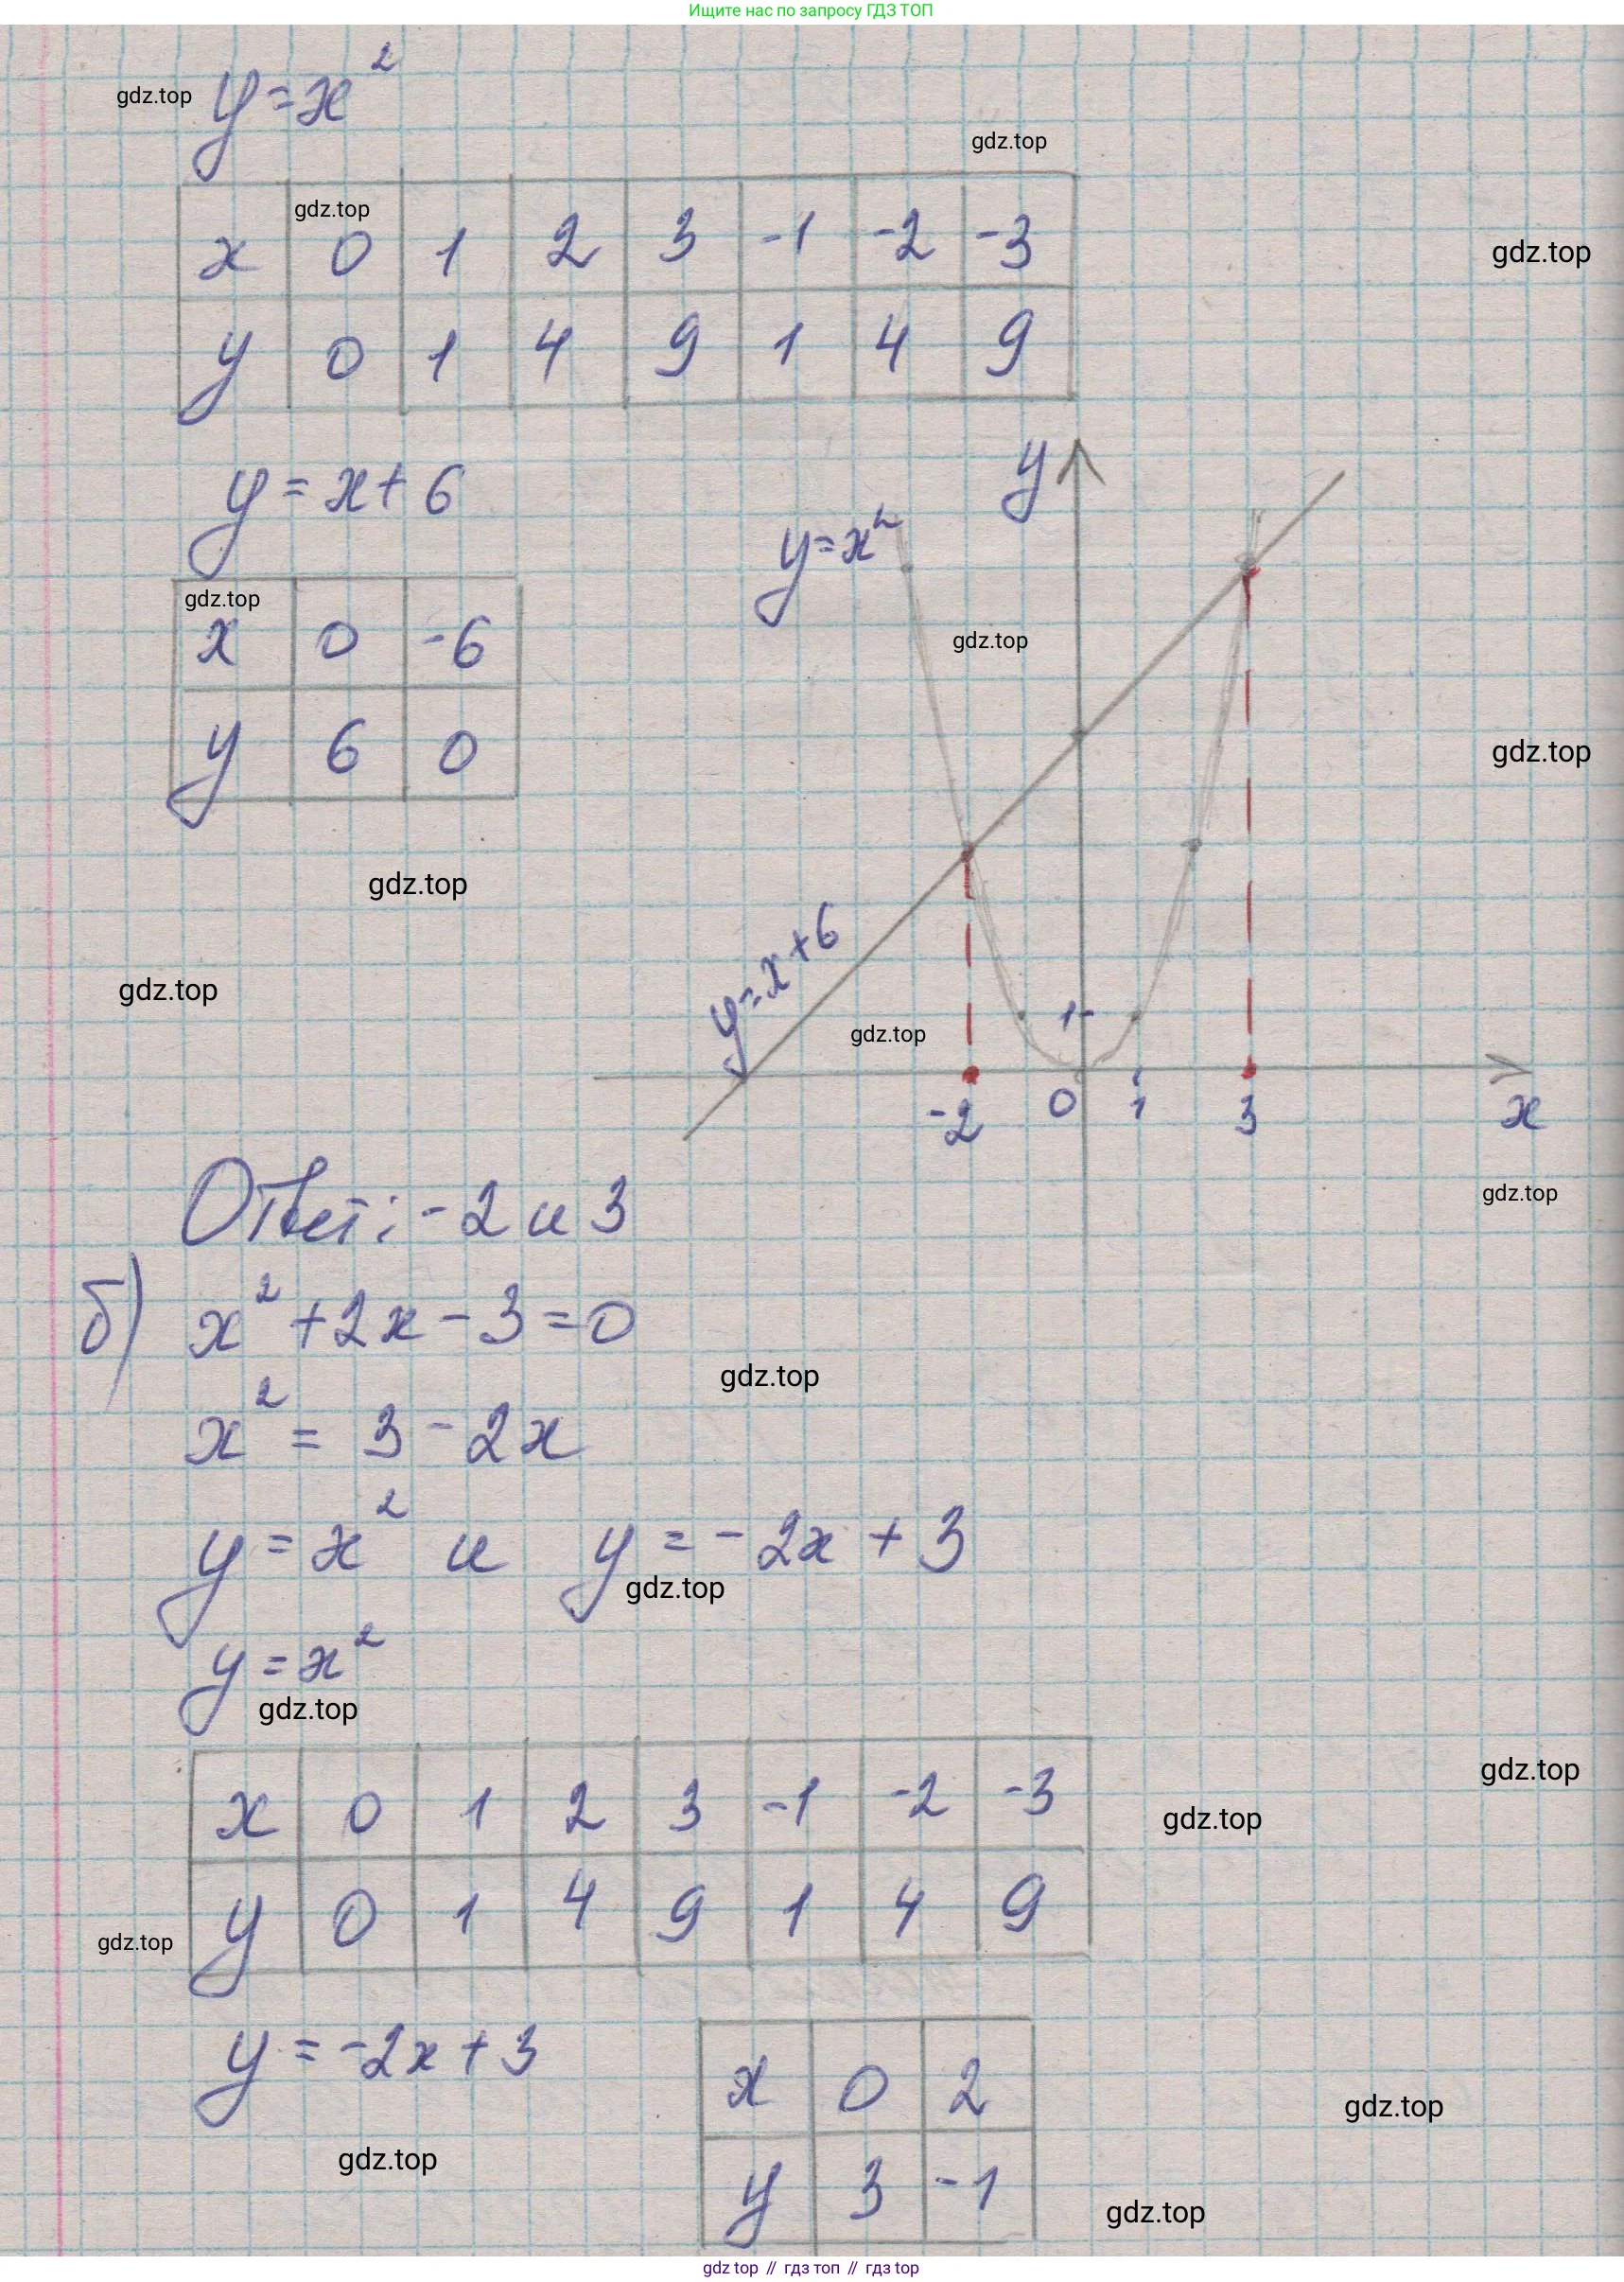 Ищите нас по запросу ГДЗ ТОП
y = x²
gdz.top
gdz.top
gdz.top
x 0 1 2 3 -1 -2 -3
gdz.top
y 0 1 4 9 1 4 9
y = x + 6
y
y = x²
gdz.top
x 0 -6
gdz.top
y 6 0
gdz.top
gdz.top
y = x + 6
gdz.top
1
gdz.top
-2 0 1 3 x
gdz.top
Ответ: -2 и 3
б) x² + 2x - 3 = 0
gdz.top
x² = 3 - 2x
y = x² и y = -2x + 3
gdz.top
y = x²
gdz.top
gdz.top
x 0 1 2 3 -1 -2 -3
gdz.top
y 0 1 4 9 1 4 9
gdz.top
y = -2x + 3
x 0 2
gdz.top
gdz.top
y 3 -1
gdz.top
gdz top // гдз топ // гдз top